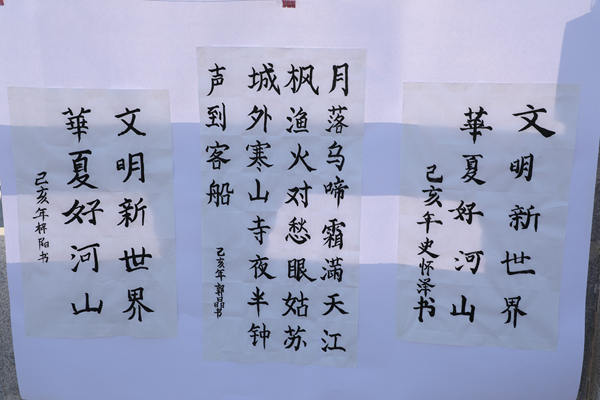 文明新世界
華夏好河山
己亥年梓阳书
月落乌啼霜滿天江
枫渔火对愁眼姑苏
城外寒山寺夜半钟
声到客船
己亥年郭晶书
文明新世界
華夏好河山
己亥年史怀泽书